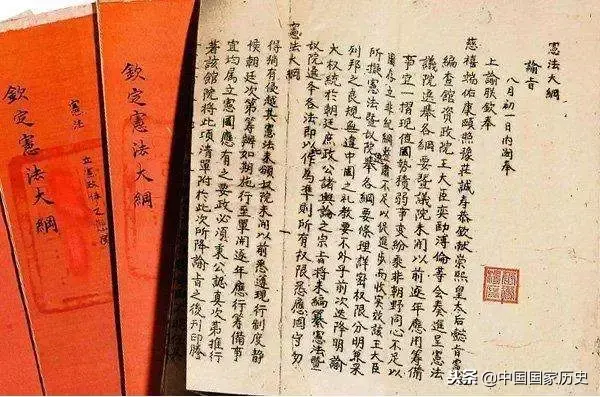 憲法大綱
諭旨
八月初一日內閣奉
上諭朕欽奉
慈禧端佑康頤昭豫莊誠壽恭欽獻崇熙皇太后懿旨憲
編查館資政院王大臣奕劻溥倫等會奏進呈憲法
議院選舉各綱要暨議院未開以前逐年應行籌備
事宜一摺現值國勢積弱事變紛乘非朝野同心不足以
圖存立非紀綱整肅不足以促進步而收實效該王大臣
所擬憲法暨議院選舉各綱要條理詳密權限分明兼采
列邦之良規無違中國之禮教要不外乎前次迭降明諭
大權統於朝廷庶政公諸輿論之宗旨將來編纂憲法暨
議院選舉各法即以作為準則所有權限悉應固守勿
憲法大綱
得稍有侵越其憲法未頒議院未開以前悉遵現行制度靜
候朝廷次第籌辦如期施行至單開逐年應行籌備事
宜均屬立憲國應有之要政必須秉公認真次第推行
著該館院將此項清單附於此次所降諭旨之後刊印謄
欽定憲法大綱
憲法
欽定憲法大綱
头条 @中国国家历史